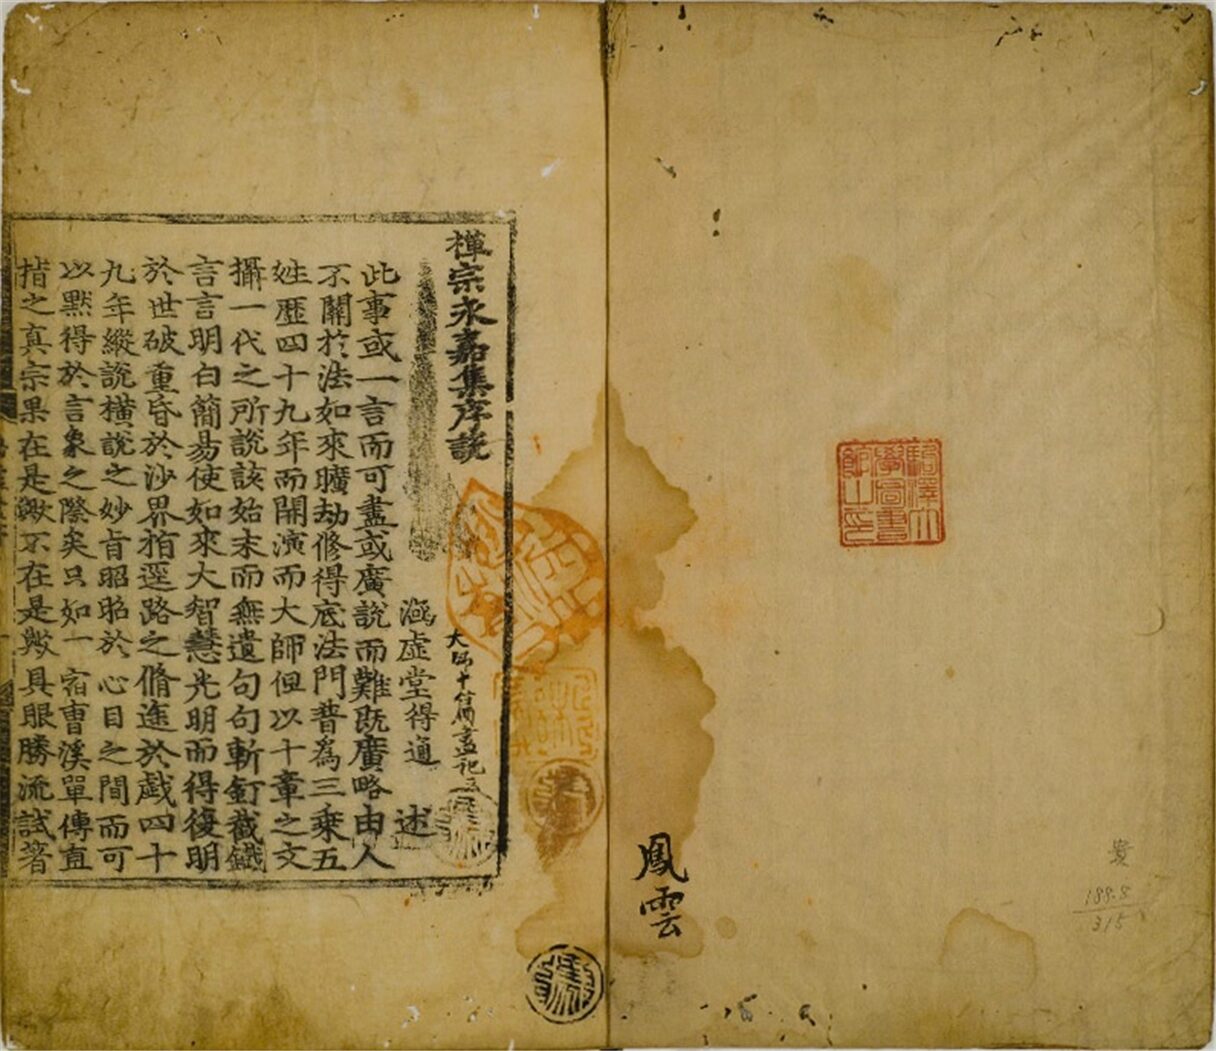 駒澤大
學圖書
館之印
貴
188.8
315
鳳雲
禪宗永嘉集序說
大師十
涵虛堂得通 述
此事或一言而可盡或廣說而難既廣略由人
不關於法如來曠劫修得底法門普爲三乘五
姓歷四十九年而開演而大師但以十章之文
攝一代之所說該始末而無遺句句斬釘截鐵
言言明白簡易使如來大智慧光明而得復明
於世破重昏於沙界指逕路之脩途於戲四十
九年縱說橫說之妙旨昭昭於心目之間而可
以默得於言象之際矣只如一宿曹溪單傳直
指之真宗果在是歟不在是歟具眼勝流試著